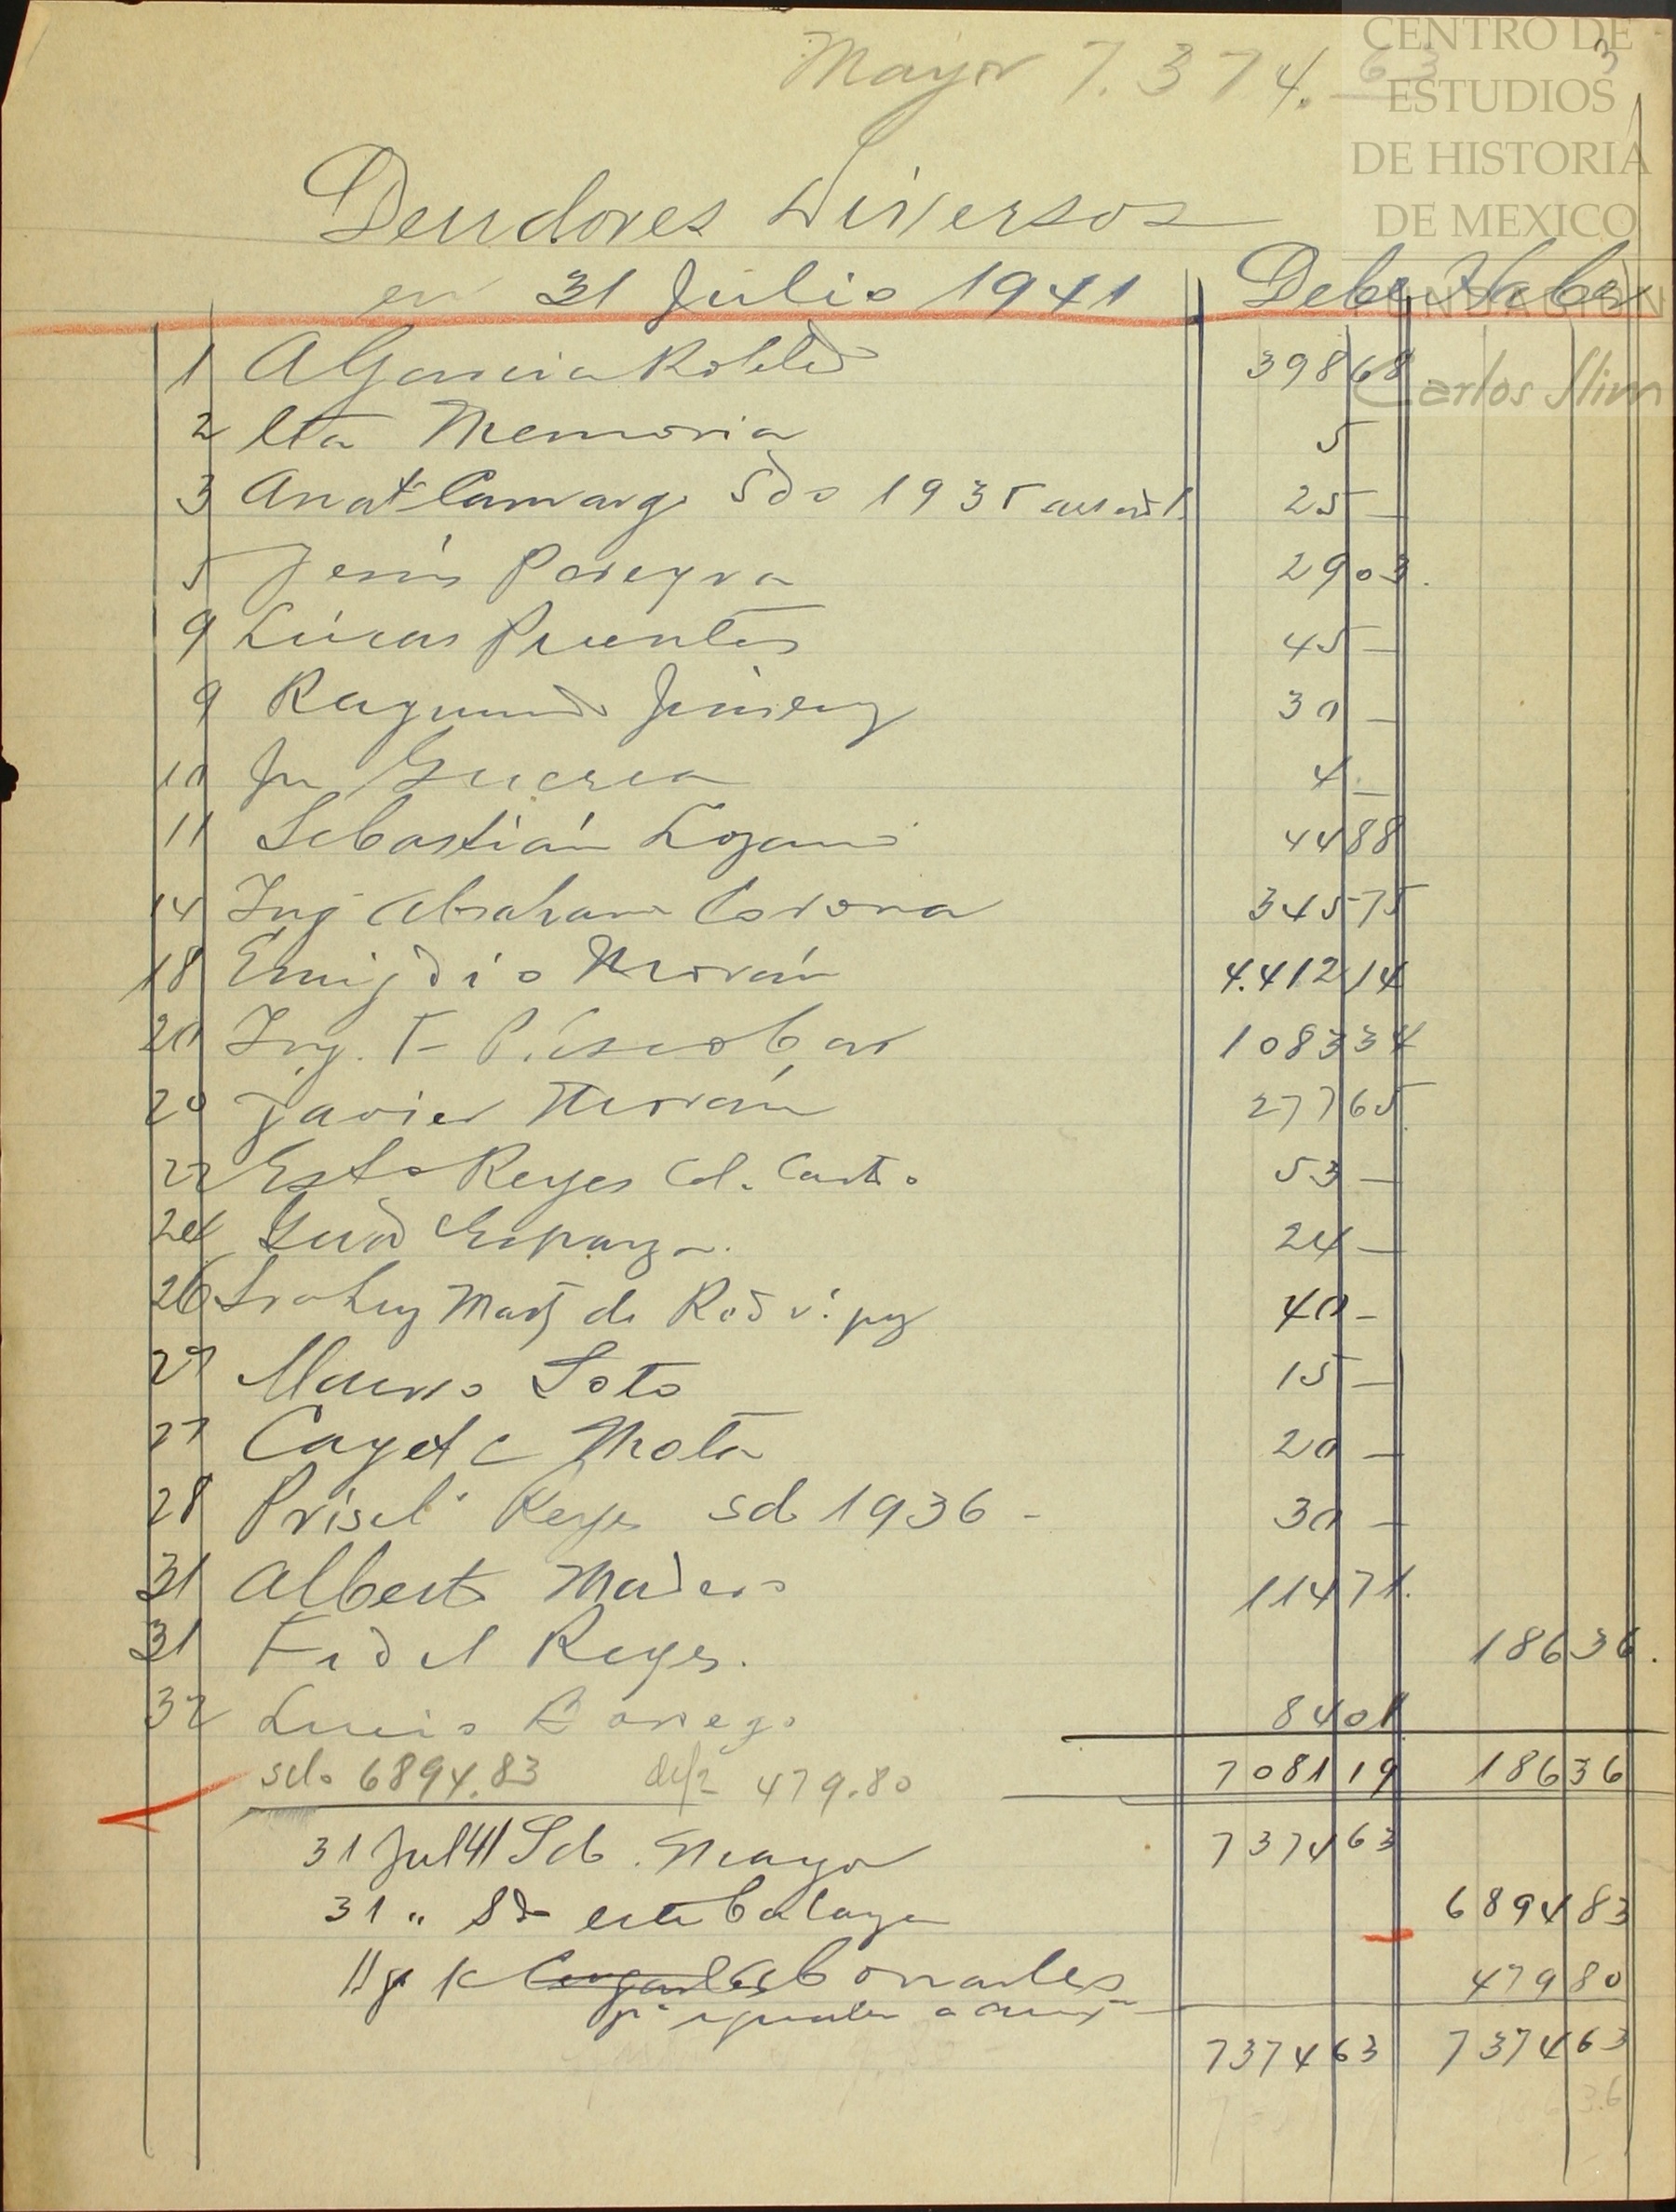 Mayor 7.374.63
3
CENTRO DE
ESTUDIOS
DE HISTORIA
DE MEXICO
FUNDACION
Carlos Slim
Deudores Diversos
en 31 Julio 1941 Debe Haber
1 A Garcia Robles 398 68
2 Cta Memoria 5
3 Anat Camargo Sdo 1935 25 —
5 Jesús Pereyra 29 03.
9 Lucas Puentes 45 —
9 Raymundo Jimenez 30 —
10 Jn Guerra 4 —
11 Sebastián Lozano 44 88
14 Ing Abraham Corona 345 75
18 Emigdio Morán 4.412 14
20 Ing. F P. Escobar 1083 34
20 Javier Morán 277 65
22 Esto Reyes Cd. Casto 53 —
24 Guad Esparza. 24 —
26 Sra Luz Mart de Rodrigz 40 —
27 Mauro Soto 15 —
27 Cayet C Mota 20 —
28 Prisc Reyes sdo 1936 - 30 —
31 Alberto Madero 114 71.
31 Fidel Reyes. 186 36.
32 Luis Borrego 84 01
sdo 6894.83 difa 479.80 7081 19 186 36
31 Jul 41 Sdo. Mayor 7374 63
31 " Sdo este Balance 6894 83
Abonarles 479 80
pa igualar a
7374 63 7374 63